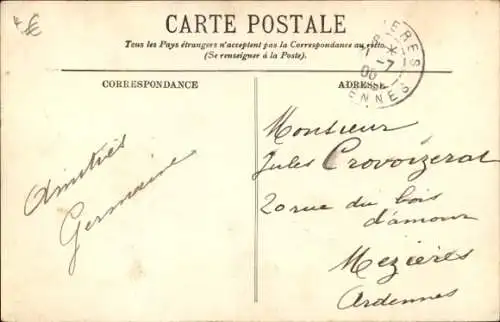 4 €
CARTE POSTALE
Tous les Pays étrangers n'acceptent pas la Correspondance au recto
(Se renseigner à la Poste).
CORRESPONDANCE
ADRESSE
Amitiés
Germaine
Monsieur
Jules Crovoizerat
20 rue du bois
d'amour
Mezières
Ardennes